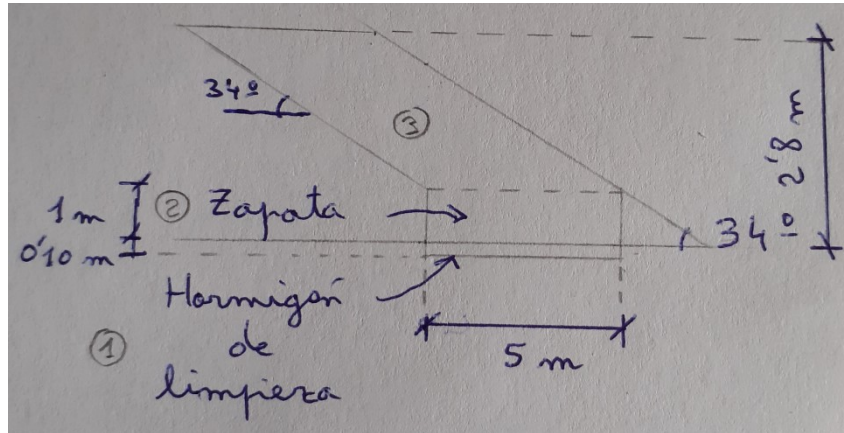 34º
③
2'8 m
1 m
② Zapata
34º
0'10 m
Hormigón
de
limpieza
①
5 m